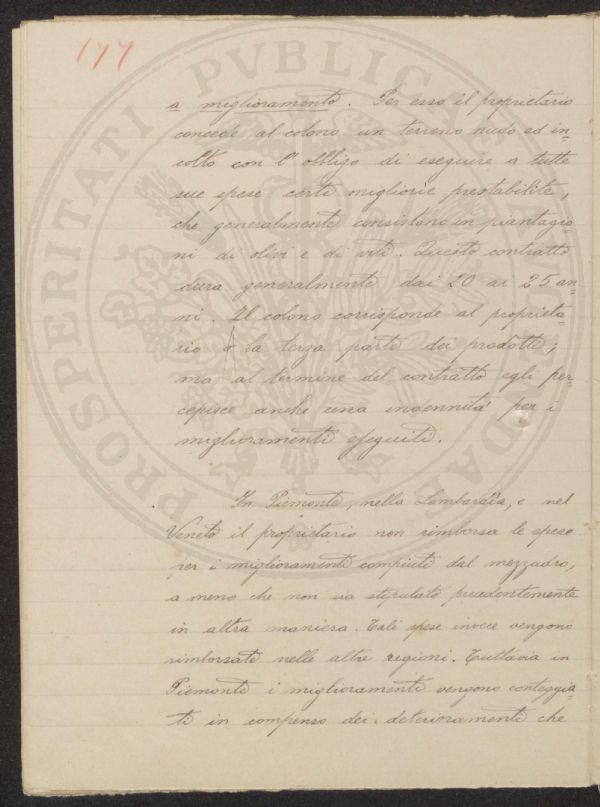 177
a miglioramento. Per esso il proprietario
concede al colono un terreno nudo ed in-
colto con l'obbligo di eseguire a tutte
sue spese certe migliorie prestabilite,
che generalmente consistono in piantagio-
ni di olivi e di viti. Questo contratto
dura generalmente dai 20 ai 25 an-
ni. Il colono corrisponde al proprieta-
rio la terza parte dei prodotti;
ma al termine del contratto egli per-
cepisce anche una indennità per i
miglioramenti eseguiti.
In Piemonte, nella Lombardia, e nel
Veneto il proprietario non rimborsa le spese
per i miglioramenti compiuti dal mezzadro,
a meno che non sia stipulato precedentemente
in altra maniera. Tali spese invece vengono
rimborsate nelle altre regioni. Tuttavia in
Piemonte i miglioramenti vengono conteggia-
ti in compenso dei deterioramenti che
PROSPERITATI PVBLICAE